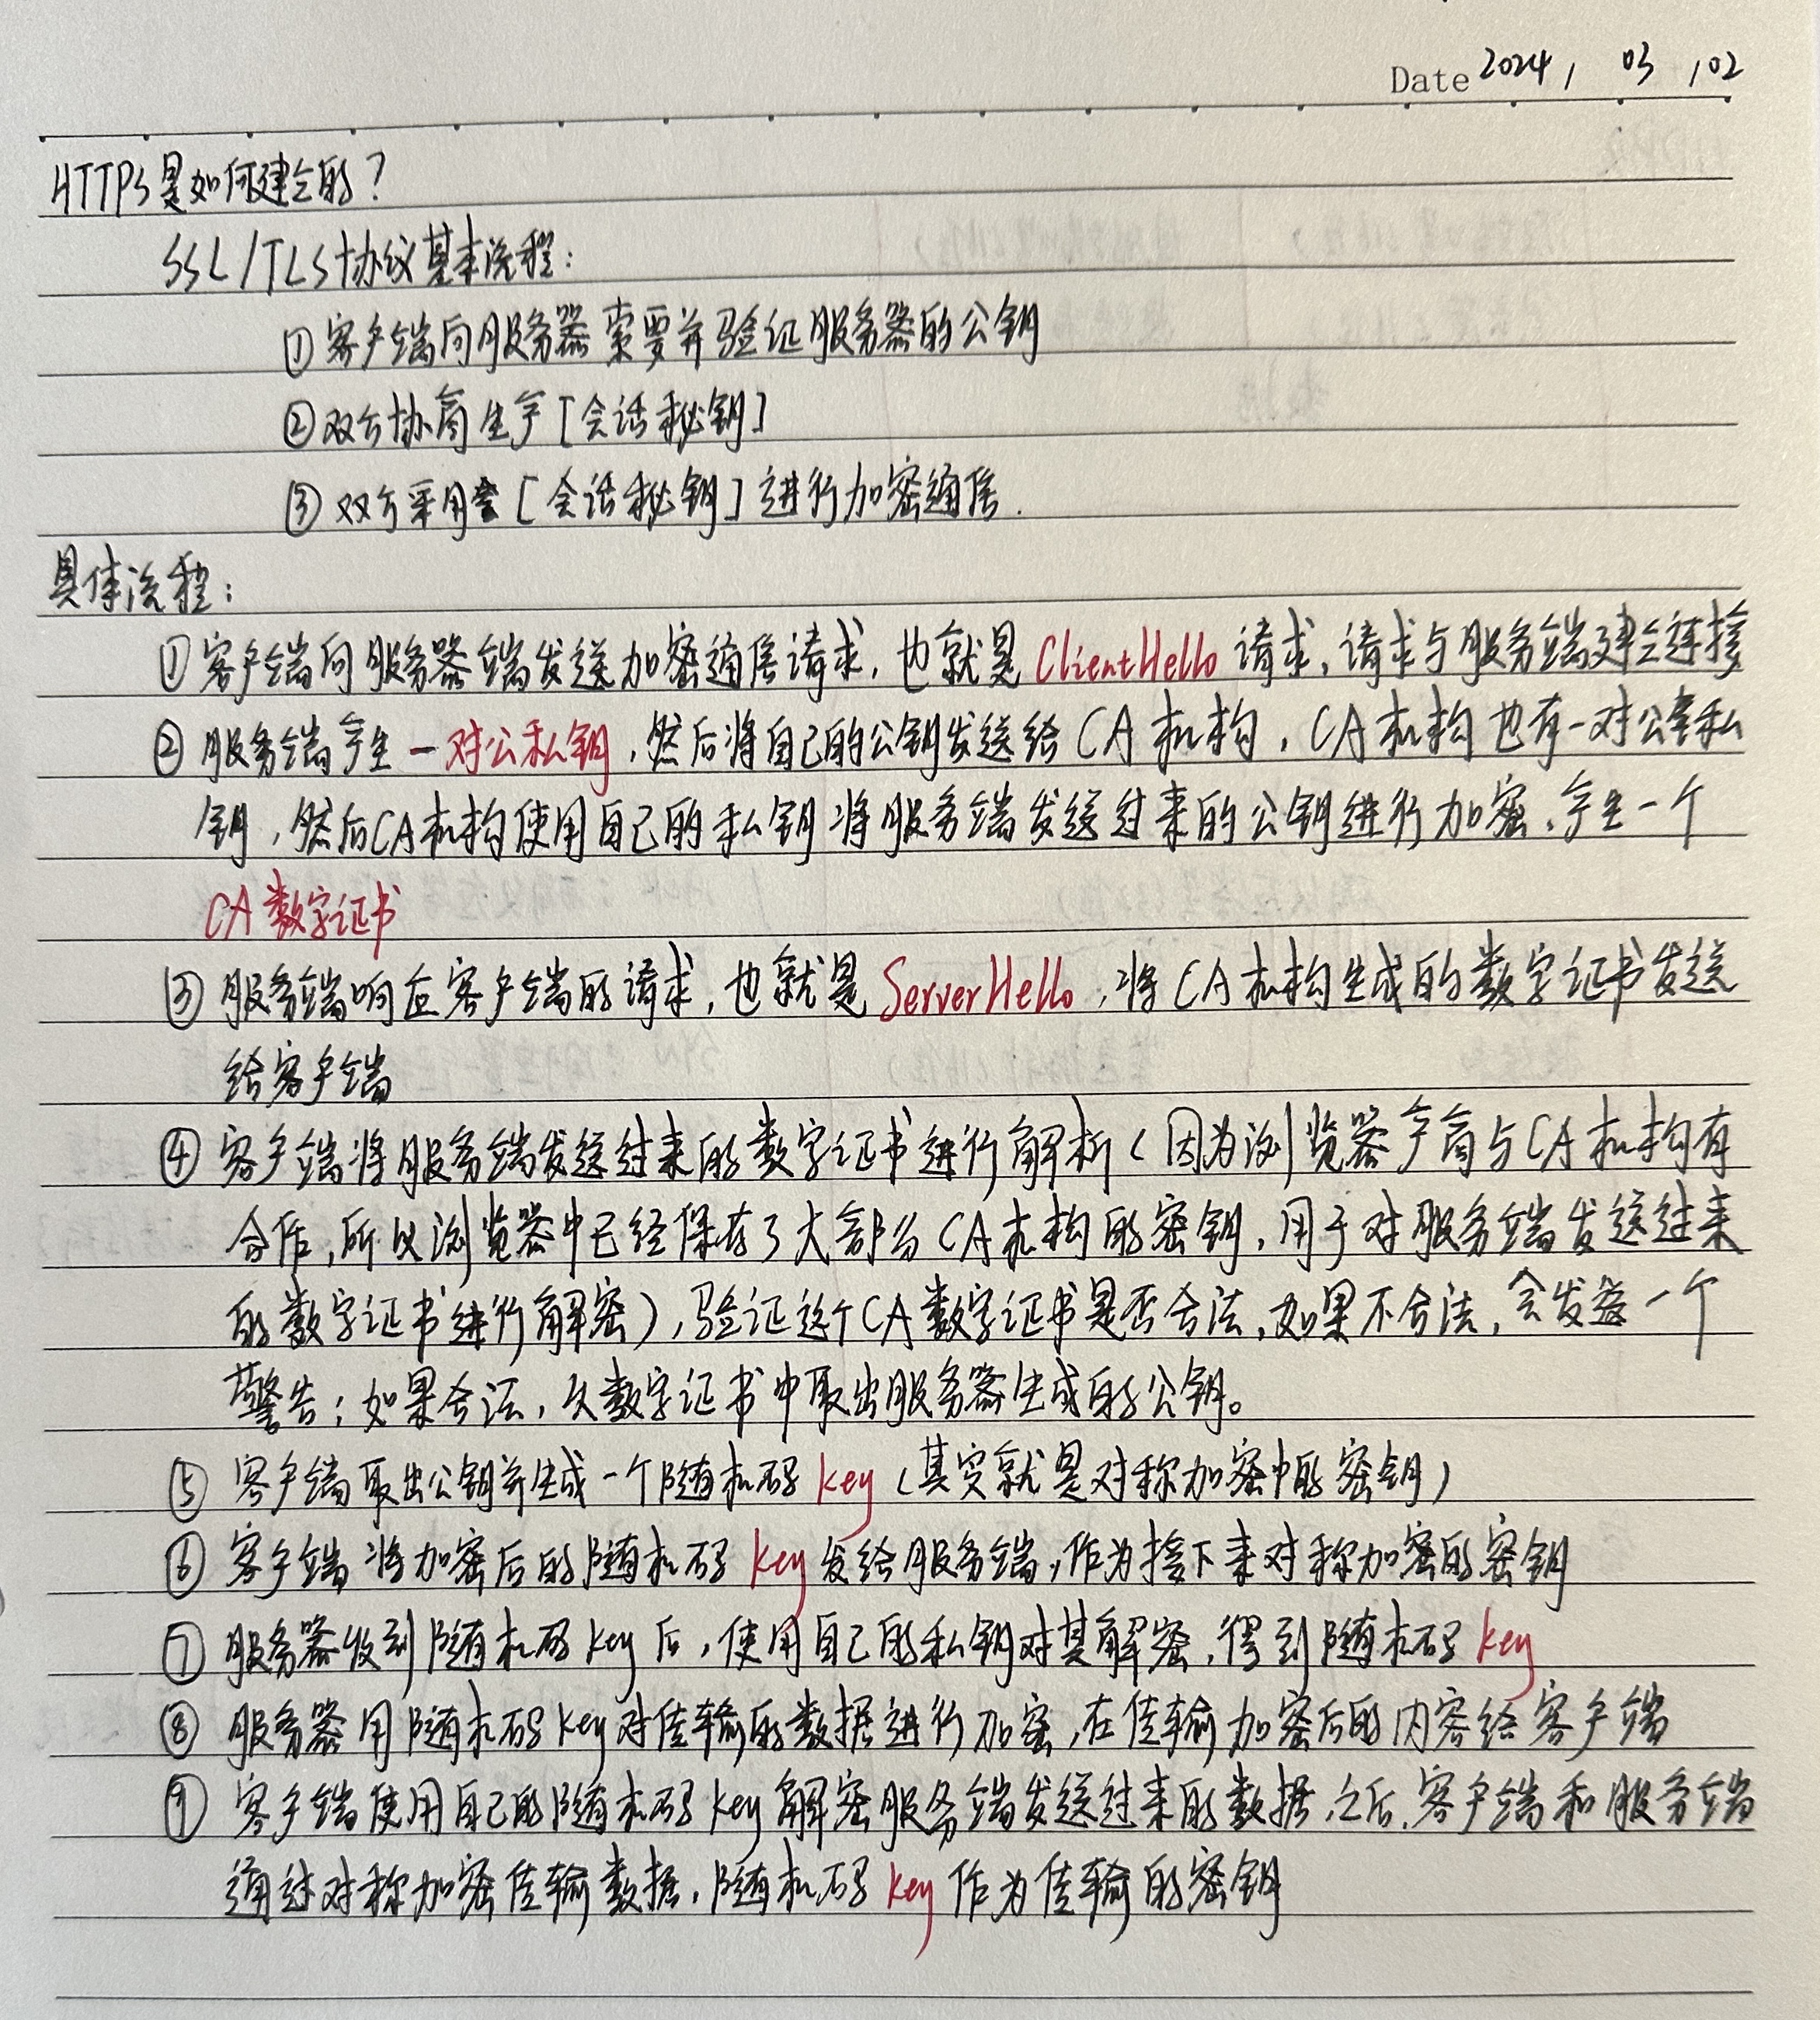 Date 2024 / 03 / 02
HTTPS是如何建立的?
SSL/TLS协议基本流程:
①客户端向服务器索要并验证服务器的公钥
②双方协商生产[会话秘钥]
③双方采用[会话秘钥]进行加密通信.
具体流程:
①客户端向服务器端发送加密通信请求,也就是ClientHello请求,请求与服务端建立连接
②服务端产生一对公私钥,然后将自己的公钥发送给CA机构,CA机构也有一对公私
钥,然后CA机构使用自己的私钥将服务端发送过来的公钥进行加密,产生一个
CA数字证书
③服务端响应客户端的请求,也就是ServerHello,将CA机构生成的数字证书发送
给客户端
④客户端将服务端发送过来的数字证书进行解析(因为浏览器产商与CA机构有
合作,所以浏览器中已经保存了大部分CA机构的密钥,用于对服务端发送过来
的数字证书进行解密),验证这个CA数字证书是否合法,如果不合法,会发送一个
警告;如果合法,从数字证书中取出服务器生成的公钥。
⑤客户端取出公钥并生成一个随机码key(其实就是对称加密中的密钥)
⑥客户端将加密后的随机码key发给服务端,作为接下来对称加密的密钥
⑦服务器收到随机码key后,使用自己的私钥对其解密,得到随机码key
⑧服务器用随机码key对传输的数据进行加密,在传输加密后的内容给客户端
⑨客户端使用自己的随机码key解密服务端发送过来的数据,之后,客户端和服务端
通过对称加密传输数据,随机码key作为传输的密钥